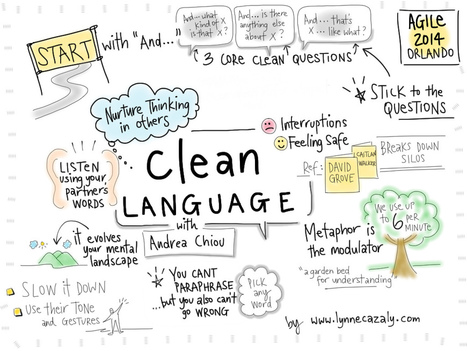 START
with "And..."
And... what
kind of X
is that X?
And... is there
anything else
about X?
And... that's
X... like what?
3 core clean QUESTIONS
AGILE
2014
ORLANDO
STICK to the
QUESTIONS
Nurture Thinking
in others
Interruptions
Feeling Safe
LISTEN
using your
partner's
WORDS
clean
LANGUAGE
with
Andrea Chiou
Ref:
DAVID
GROVE
CAITLAN
WALKER
BREAKS DOWN
SILOS
We use up
to 6 per
MINUTE
Metaphor is
the modulator
"a garden bed
for understanding
it evolves
your mental
landscape
SLOW it DOWN
Use their TONE
and GESTURES
YOU CANT
PARAPHRASE
...but you also can't
go WRONG
PICK
any
Word
by www.lynnecazaly.com